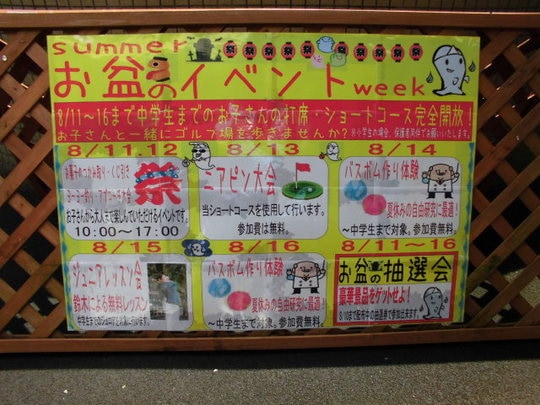 summer
お盆のイベント week
8/11～16まで中学生までのお子さんの打席・ショートコース完全開放！
お子さんと一緒にゴルフ場を歩きませんか？※小学生の場合、保護者同伴でお願いいたします。
8/11.12
お菓子のつかみ取り・くじ引き
祭
お子さんから大人まで楽しんでいただけるイベントです。
10:00～17:00
8/13
ニアピン大会
当ショートコースを使用して行います。
参加費は無料。
8/14
バスボム作り体験
夏休みの自由研究に最適！
～中学生まで対象。参加費無料。
8/15
ジュニアレッスン会
鈴木による無料レッスン
8/16
バスボム作り体験
夏休みの自由研究に最適！
～中学生まで対象。参加費無料。
8/11～16
お盆の抽選会
豪華景品をゲットせよ！
8/10まで配布中の抽選券で参加出来ます。